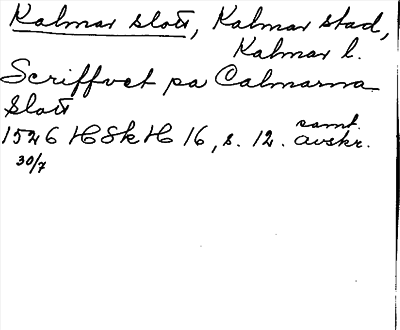 Kalmar slott, Kalmar stad,
Kalmar l.
Scriffvet pa Calmarna
Slott
1526 HSkH 16, s. 12. samt. avskr.
30/7